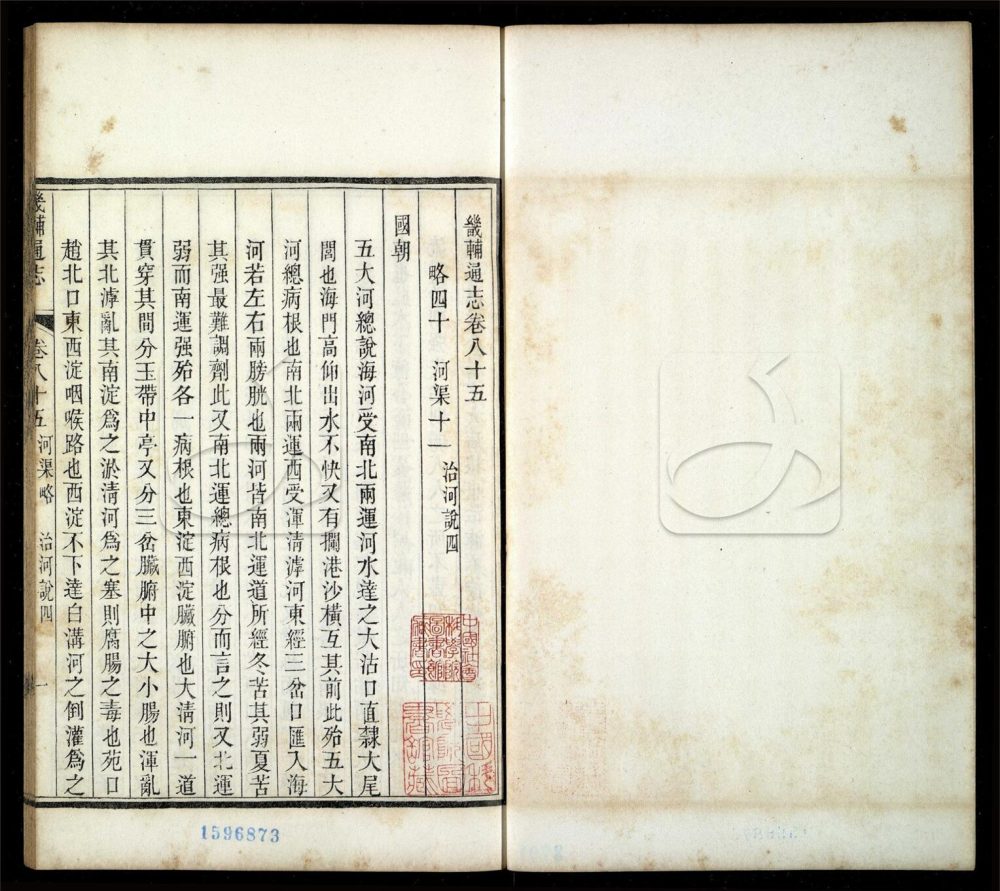 畿輔通志卷八十五
略四十 河渠十一 治河說四
國朝
五大河總說海河受南北兩運河水達之大沽口直隸大尾
閭也海門高仰出水不快又有攔港沙橫亙其前此殆五大
河總病根也南北兩運西受渾清滹河東經三岔口匯入海
河若左右兩膀胱也兩河皆南北運道所經冬苦其弱夏苦
其强最難調劑此又南北運總病根也分而言之則又北運
弱而南運强殆各一病根也東淀西淀臟腑也大清河一道
貫穿其間分玉帶中亭又分三岔臟腑中之大小腸也渾亂
其北滹亂其南淀為之淤清河為之塞則腐腸之毒也苑口
趙北口東西淀咽喉路也西淀不下達白溝河之倒灌為之
畿輔通志 卷八十五 河渠略 治河說四 一
1596873